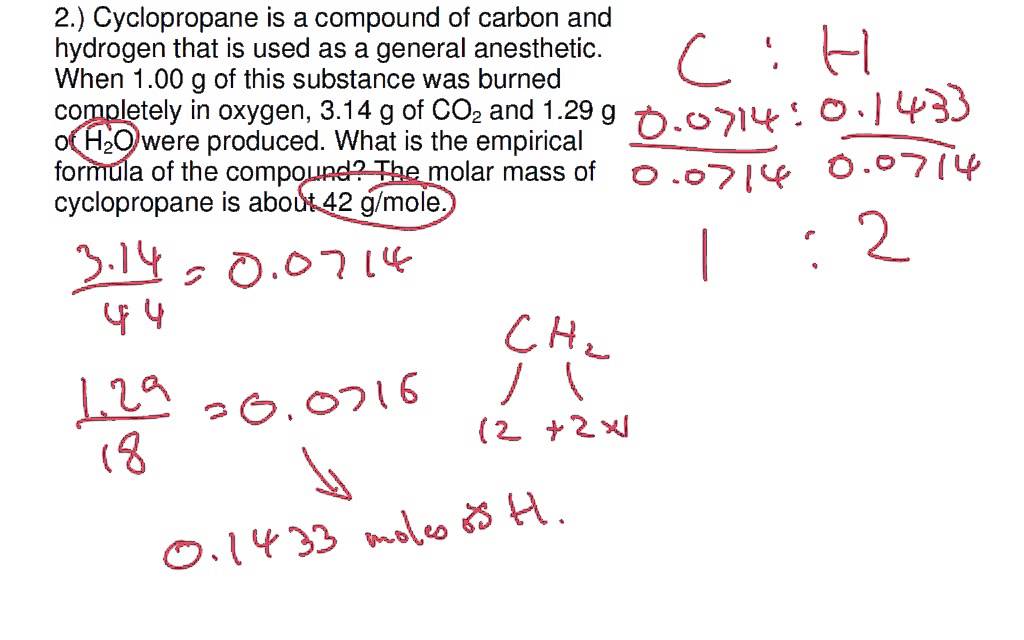 2.) Cyclopropane is a compound of carbon and
hydrogen that is used as a general anesthetic.
When 1.00 g of this substance was burned
completely in oxygen, 3.14 g of CO₂ and 1.29 g
of H₂O were produced. What is the empirical
formula of the compound? The molar mass of
cyclopropane is about 42 g/mole.
C : H
0.0714 : 0.1433
0.0714 0.0714
1 : 2
3.14
= 0.0714
44
CH₂
12 +2×1
1.29
= 0.0716
18
0.1433 moles of H.